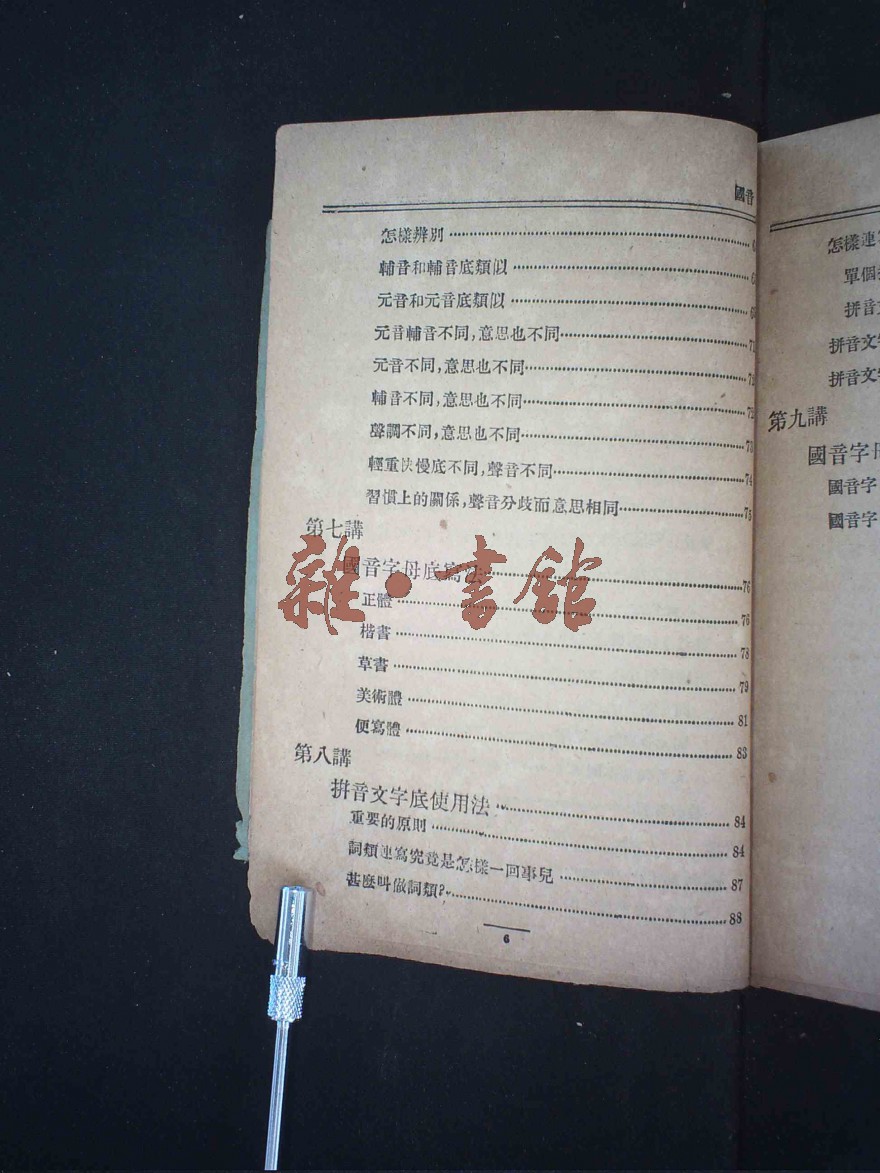 國音
怎樣辨別
輔音和輔音底類似
元音和元音底類似
元音輔音不同,意思也不同 71
元音不同,意思也不同 72
輔音不同,意思也不同 72
聲調不同,意思也不同 73
輕重快慢底不同,聲音不同 74
習慣上的關係,聲音分歧而意思相同 75
第七講
國音字母底寫法 76
正體 76
楷書 78
草書 79
美術體 81
便寫體 83
第八講
拼音文字底使用法 84
重要的原則 84
詞類連寫究竟是怎樣一回事兒 87
甚麼叫做詞類? 88
6
雜·書館
怎樣連寫
單個
拼音文
拼音文字
拼音文字
第九講
國音字母
國音字
國音字